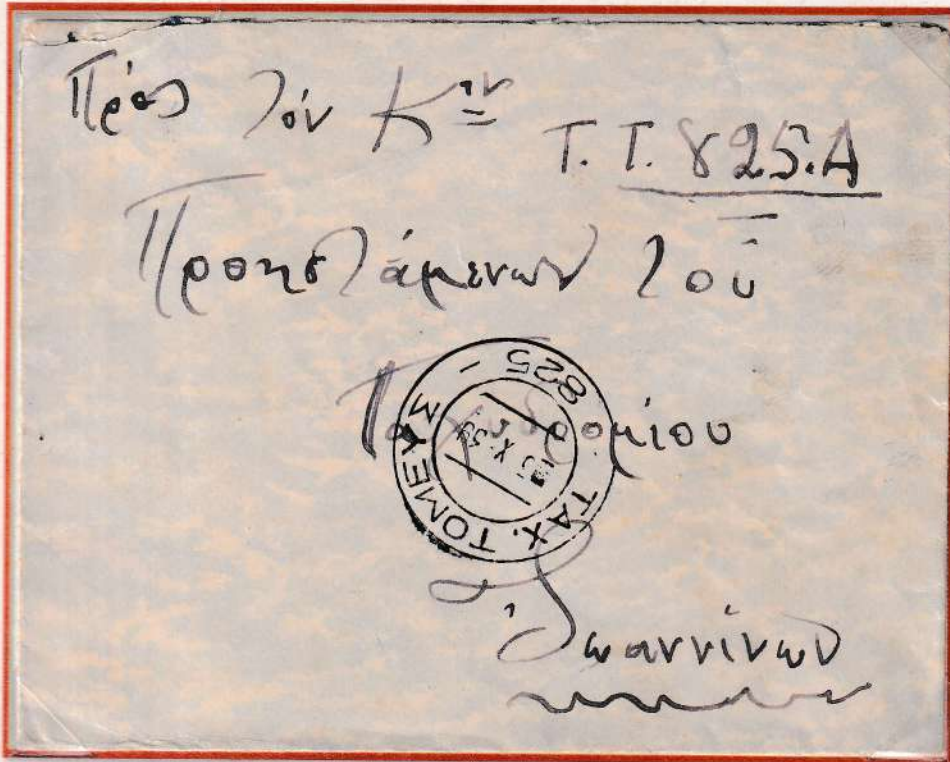 Πρός τόν Κον
Τ.Τ. 825.Α
Προηστάμενων τού
Ταχυδρομίου
Ἰωαννίνων
ΤΑΧ. ΤΟΜΕΥΣ
825
Χ